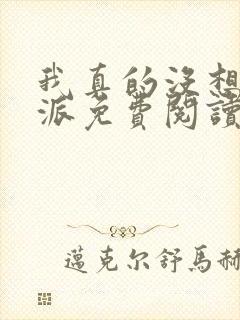 我真的没想
派免費閱讀
邁克尔舒馬赫